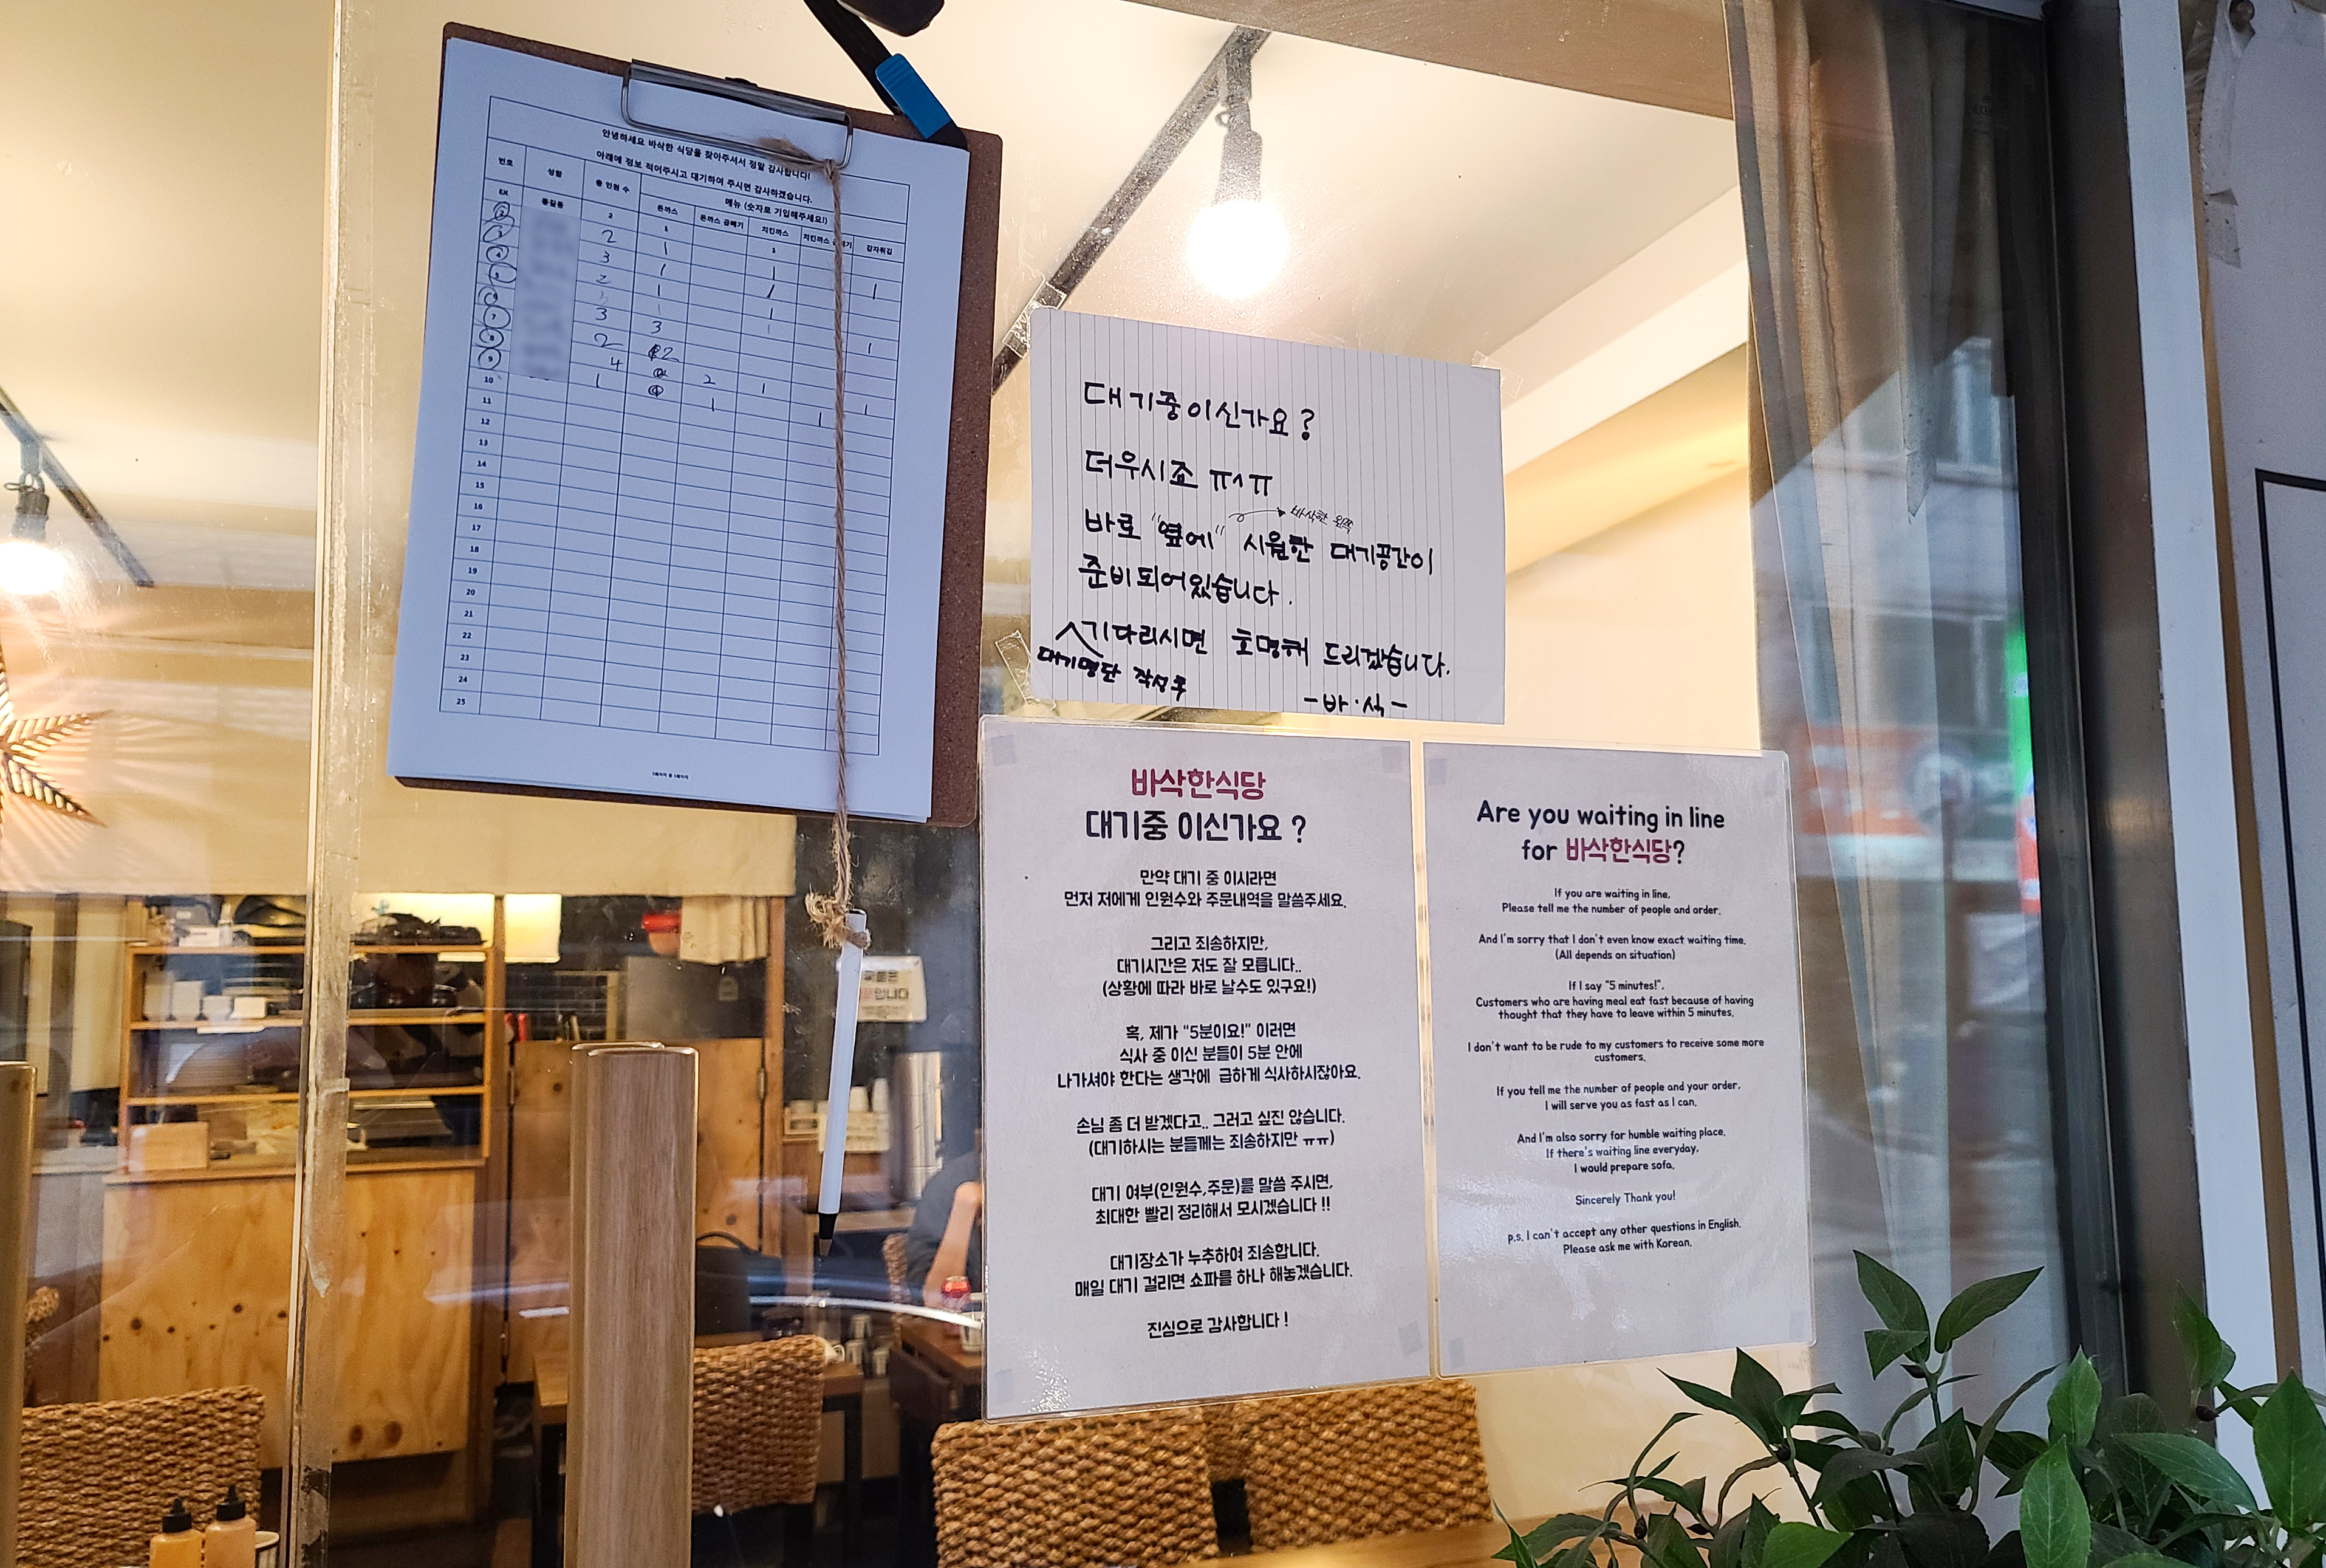 안녕하세요 바삭한 식당을 찾아주셔서 정말 감사합니다!
아래에 정보 적어주시고 대기하여 주시면 감사하겠습니다.
번호 성함 총 인원 수 메뉴 (숫자로 기입해주세요!)
돈까스 돈까스 곱빼기 치킨까스 치킨까스 감자튀김
EX 홍길동 2 1 1
2 2 1 1
3 3 1 1 1
4 2 1 1
5
6 3 3 1
7 2 2
8 4 2 1 1
9 1 1 1
10
11
12
13
14
15
16
17
18
19
20
21
22
23
24
25
대기중이신가요?
더우시죠 ㅠ^ㅠ
바삭한 왼쪽
바로 "옆에" 시원한 대기공간이
준비되어있습니다.
기다리시면 호명해 드리겠습니다.
대기명단 작성후
-바·식-
바삭한식당
대기중 이신가요 ?
만약 대기 중 이시라면
먼저 저에게 인원수와 주문내역을 말씀주세요.
그리고 죄송하지만,
대기시간은 저도 잘 모릅니다..
(상황에 따라 바로 날수도 있구요!)
혹, 제가 "5분이요!" 이러면
식사 중 이신 분들이 5분 안에
나가셔야 한다는 생각에 급하게 식사하시잖아요.
손님 좀 더 받겠다고.. 그러고 싶진 않습니다.
(대기하시는 분들께는 죄송하지만 ㅠㅠ)
대기 여부(인원수,주문)를 말씀 주시면,
최대한 빨리 정리해서 모시겠습니다 !!
대기장소가 누추하여 죄송합니다.
매일 대기 걸리면 쇼파를 하나 해놓겠습니다.
진심으로 감사합니다 !
Are you waiting in line
for 바삭한식당?
If you are waiting in line,
Please tell me the number of people and order.
And I'm sorry that I don't even know exact waiting time.
(All depends on situation)
If I say "5 minutes!",
Customers who are having meal eat fast because of having
thought that they have to leave within 5 minutes.
I don't want to be rude to my customers to receive some more
customers.
If you tell me the number of people and your order,
I will serve you as fast as I can.
And I'm also sorry for humble waiting place.
If there's waiting line everyday,
I would prepare sofa.
Sincerely Thank you!
p.s. I can't accept any other questions in English.
Please ask me with Korean.